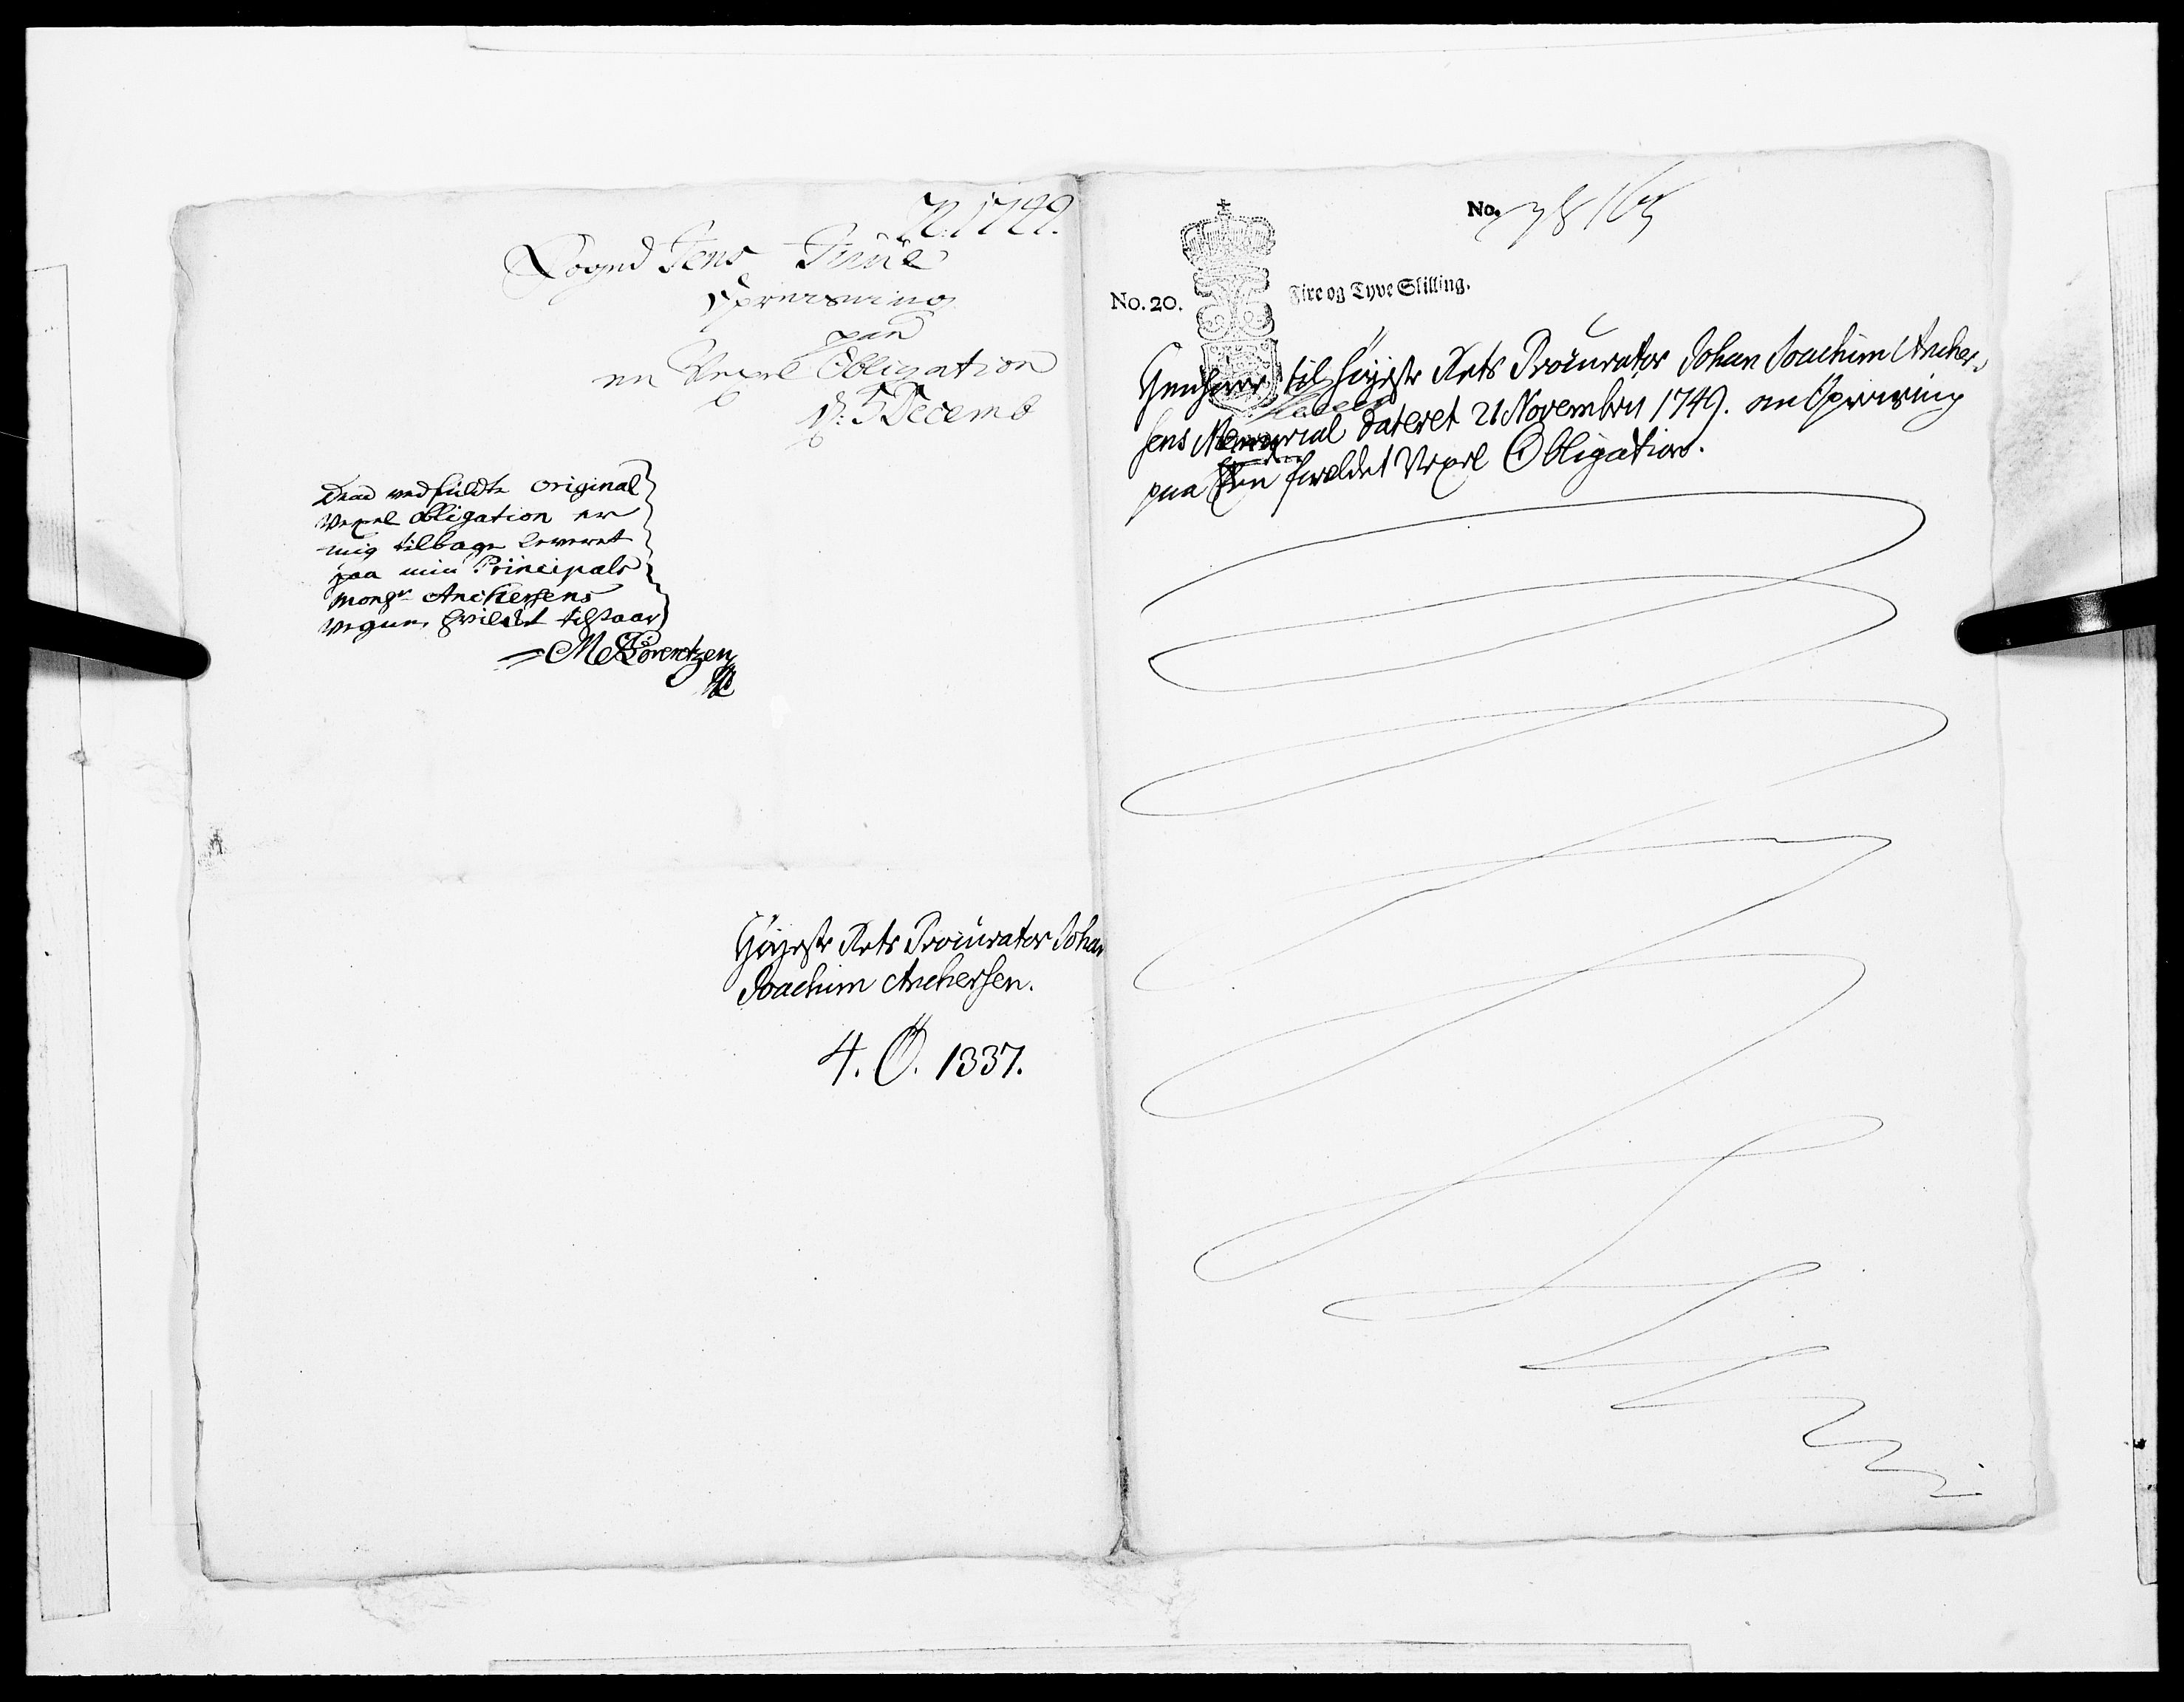 1749.
Fogud Jens Juúl
Opreisning
paa
en Vexel Obligation
d: 5 Decemb
Den vedfuldte original
Vexel obligation er
mig tilbage leveret
paa min Principals
Monsr Anchersens
vegne, hvilket tilstaar
M Lorentzen
Höyeste Rets Procurator Johan
Joachim Anchersen.
4. O. 1337.
No.
No. 20. Fire og Tyve Skilling.
Henhörer til Höyeste Rets Procurator Johan Joachim Ancher,
sens Memorial dateret 21 Novembris 1749. om Opreisning
paa en foræeldet Vexel Obligation.